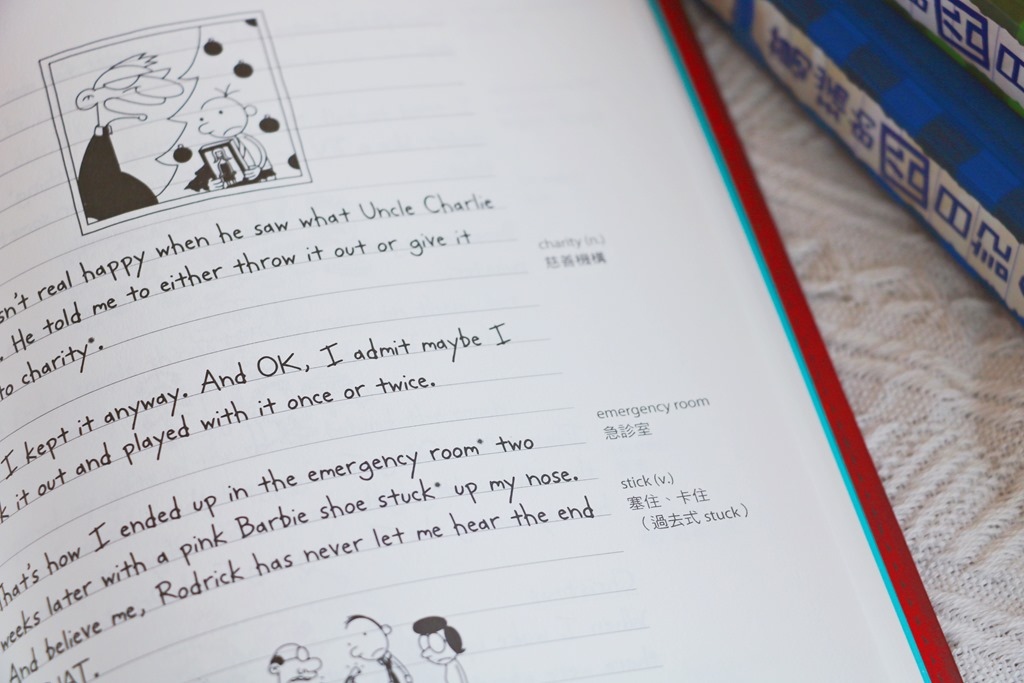 sn't real happy when he saw what Uncle Charlie
. He told me to either throw it out or give it
to charity*.
I kept it anyway. And OK, I admit maybe I
k it out and played with it once or twice.
That's how I ended up in the emergency room* two
weeks later with a pink Barbie shoe stuck* up my nose.
And believe me, Rodrick has never let me hear the end
charity (n.)
慈善機構
emergency room
急診室
stick (v.)
塞住、卡住
（過去式 stuck）